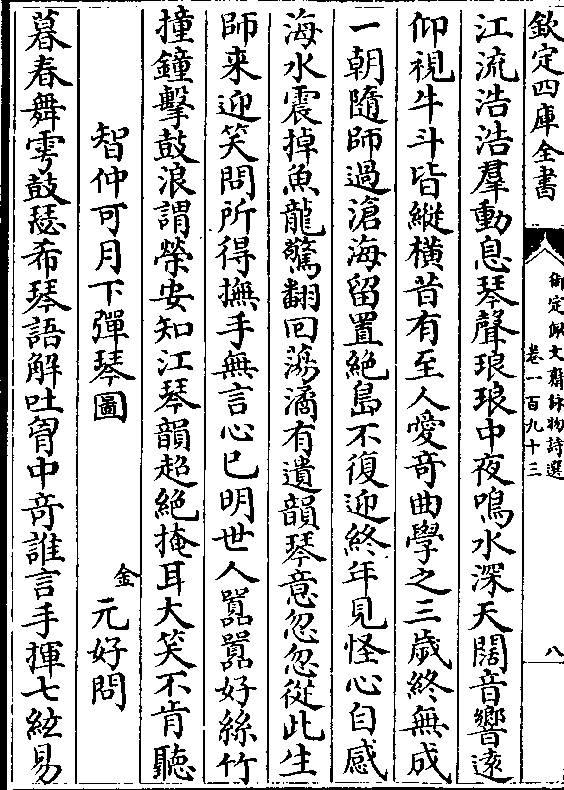 欽定四庫全書
御定佩文齋詠物詩選
卷一百九十三
八
江流浩浩羣動息琴聲琅琅中夜鳴水深天闊音響遠
仰視牛斗皆縱横昔有至人愛奇曲學之三歲終無成
一朝隨師過滄海留置絶島不復迎終年見怪心自感
海水震掉魚龍驚翻回蕩潏有遺韻琴意忽忽從此生
師来迎笑問所得撫手無言心已明世人囂囂好絲竹
撞鐘擊鼓浪謂榮安知江琴韻超絶掩耳大笑不肯聽
智仲可月下彈琴圖
金
元好問
暮春舞雩鼓瑟希琴語解吐胷中奇誰言手揮七絃易